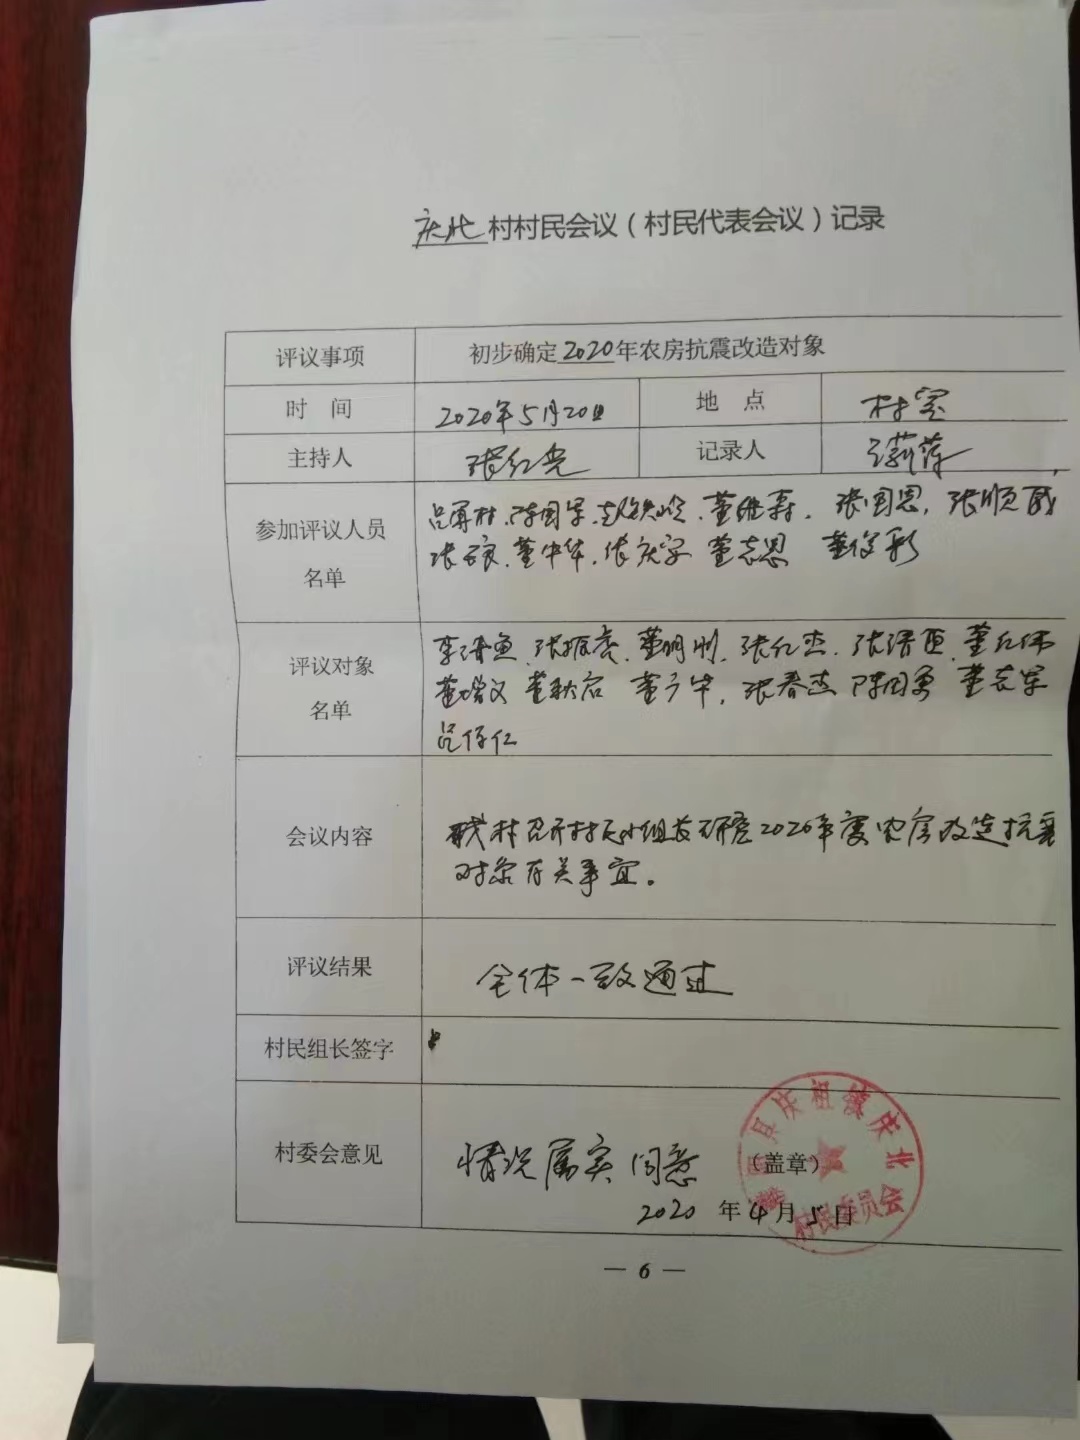 庆北村村民会议（村民代表会议）记录
评议事项 初步确定2020年农房抗震改造对象
时 间 2020年5月20日 地 点 村室
主持人 张红光 记录人
参加评议人员
名单
陈国军 董继寿、张国恩、张顺
董中华、张庆字 董志恩 董俊彩
评议对象
名单
张振亮、董明刚、张红杰、董红伟
董增义 董秋启 董广华、张春杰 陈国勇 董志军
吕存仁
会议内容 我村召开村民小组长研究2020年度农房改造抗震
对象有关事宜。
评议结果 全体一致通过
村民组长签字
村委会意见 情况属实 同意 （盖章）
2020 年4月5日
县庆祖镇庆北
村民委员会
— 6 —